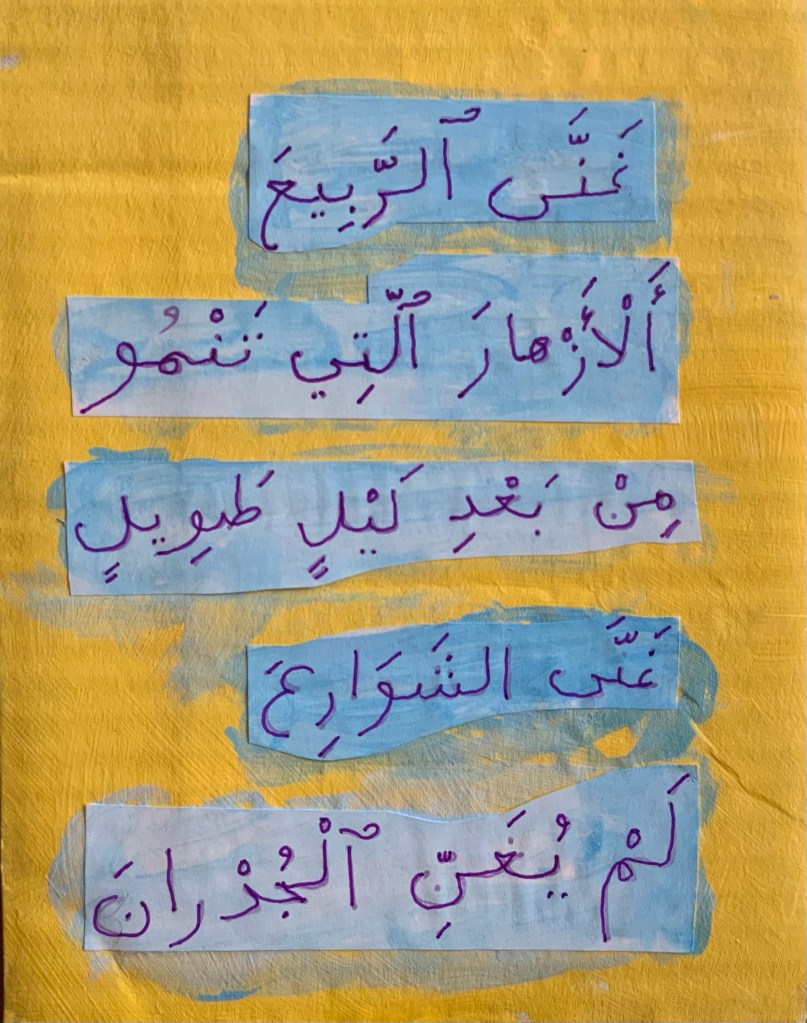 غَنَّى ٱلرَّبِيعَ
أَلْأَزْهارَ ٱلَّتِي تَنْمُو
مِنْ بَعْدِ لَيْلٍ طَوِيلٍ
غَنَّى الشَوَارِعَ
لَمْ يُغَنِّ ٱلْجُدْرانَ